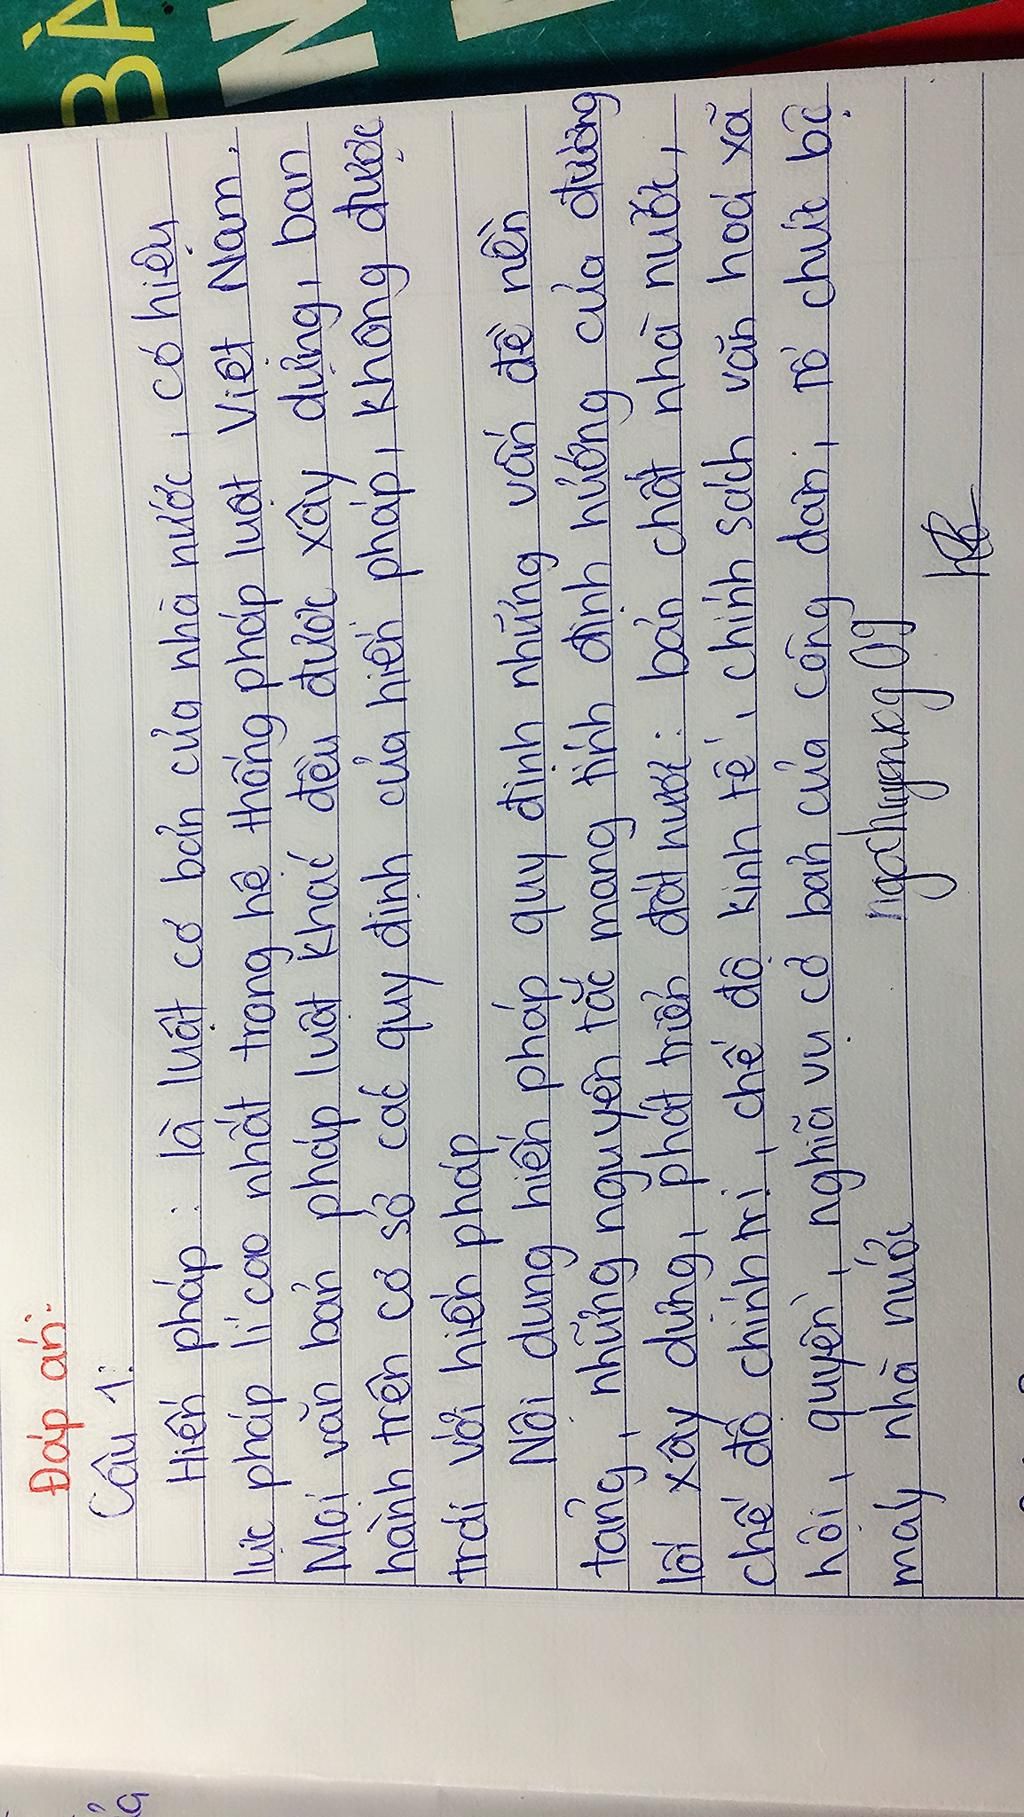 BÀ
N
Đáp án:
Câu 1:
Hiến pháp : là luật cơ bản của nhà nước, có hiệu
lực pháp lí cao nhất trong hệ thống pháp luật Việt Nam.
Mọi văn bản pháp luật khác đều được xây dựng, ban
hành trên cơ sở các quy định của hiến pháp, không được
trái với hiến pháp
Nội dung hiến pháp quy định những vấn đề nền
tảng, những nguyên tắc mang tính định hướng của đường
lối xây dựng, phát triển đất nước : bản chất nhà nước,
chế độ chính trị, chế độ kinh tế, chính sách văn hoá xã
hội, quyền, nghĩa vụ cơ bản của công dân, tổ chức bộ
máy nhà nước
ngochuyenkg09